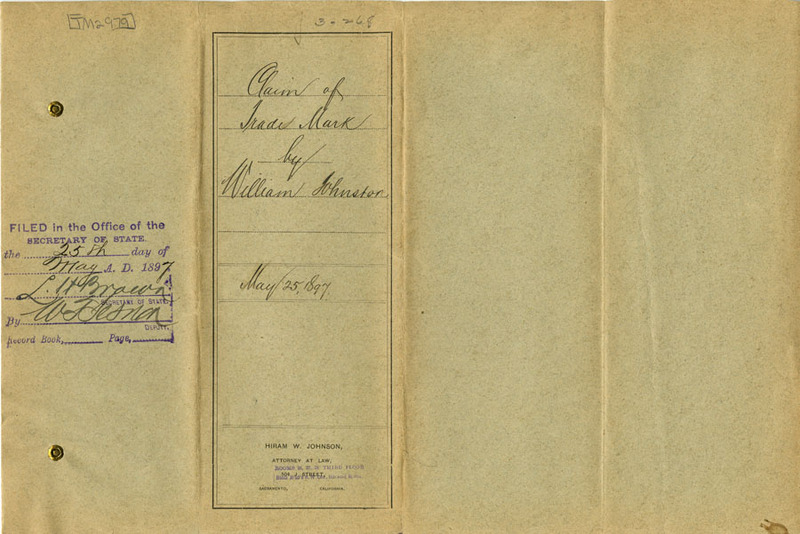 TM2979
3-268
Claim of
Trade Mark
by
William Johnston
May 25, 1897.
HIRAM W. JOHNSON,
ATTORNEY AT LAW,
504 J STREET,
SACRAMENTO, CALIFORNIA.
FILED in the Office of the
SECRETARY OF STATE.
the 25th day of
May A. D. 1897
L. H. Brown
SECRETARY OF STATE
By
DEPUTY.
Record Book, Page,